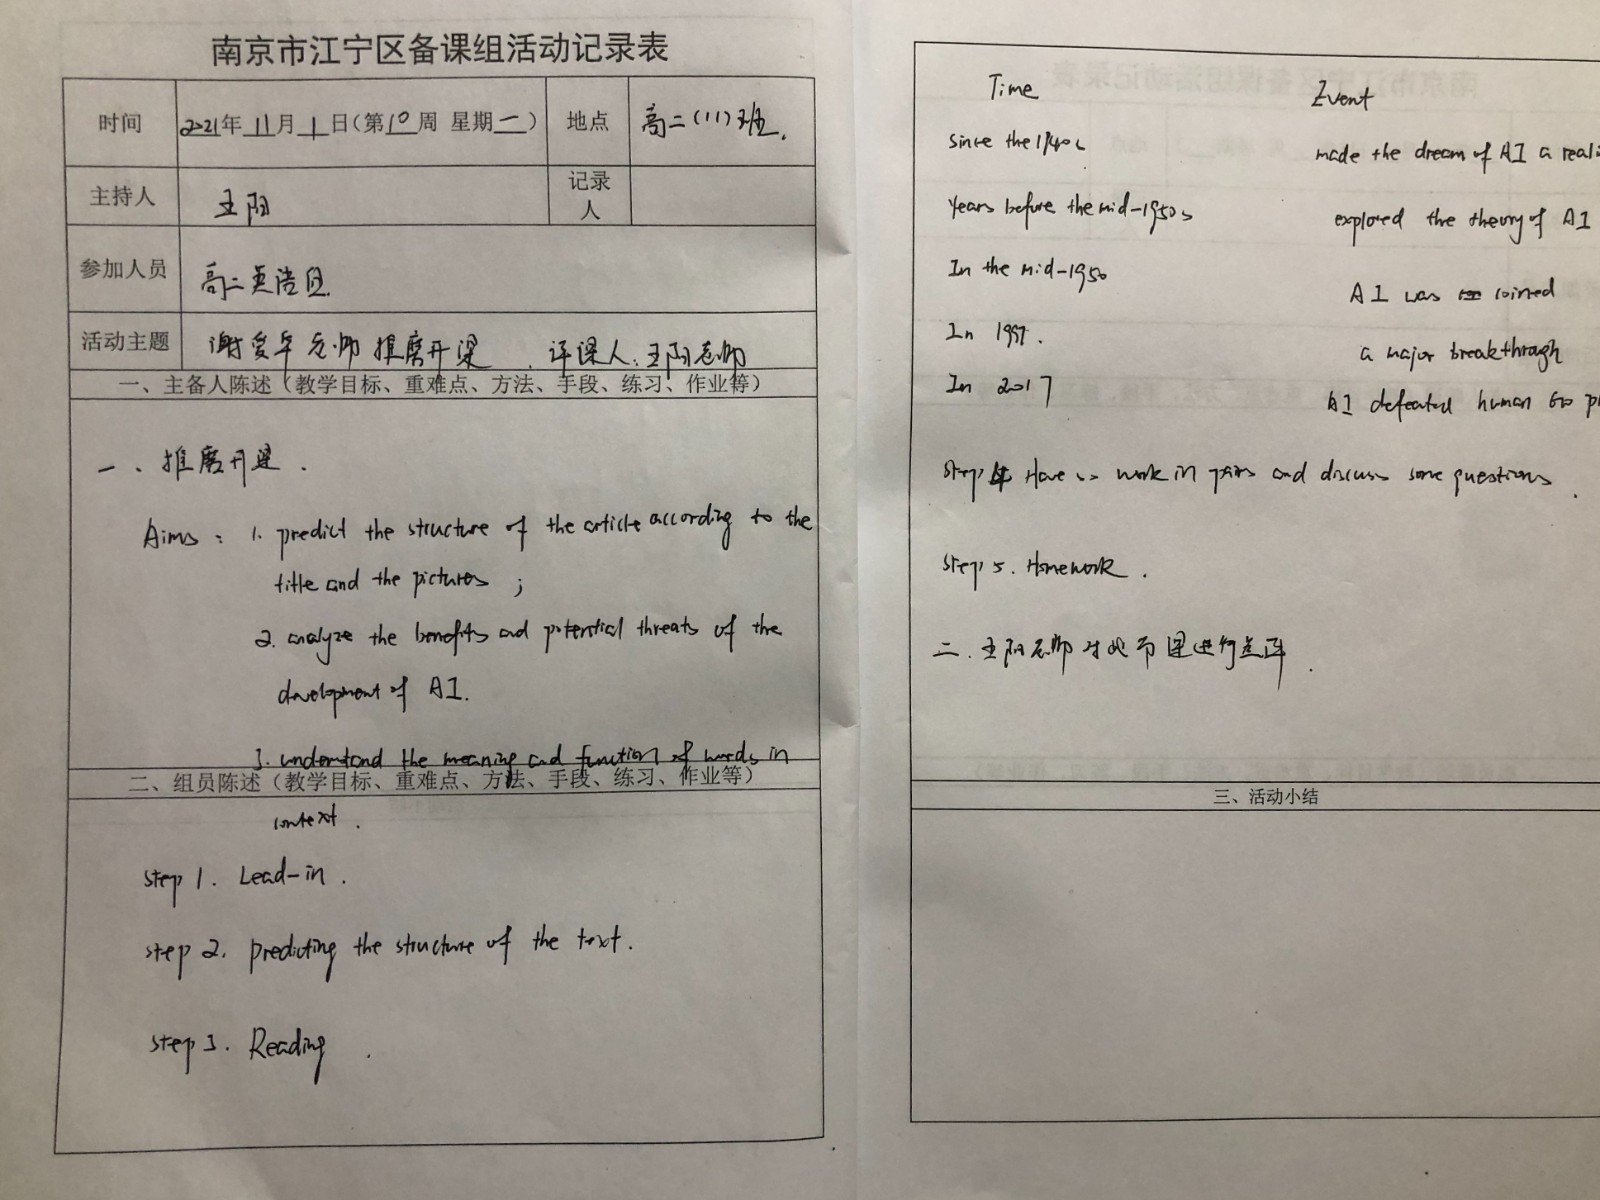 南京市江宁区备课组活动记录表
时间 2021年 11月 1日(第10周 星期一) 地点 高二(11)班.
主持人 王阳 记录人
参加人员 高二英语组
活动主题 谢爱军老师推磨开课. 评课人:王阳老师
一、主备人陈述(教学目标、重难点、方法、手段、练习、作业等)
一、推磨开课.
Aims: 1. predict the structure of the article according to the
title and the pictures;
2. analyze the benefits and potential threats of the
development of AI.
3. understand the meaning and function of words in
二、组员陈述(教学目标、重难点、方法、手段、练习、作业等)
context.
Step 1. Lead-in.
step 2. predicting the structure of the text.
step 3. Reading.
Time Event
since the 1940s made the dream of AI a reali
Years before the mid-1950s explored the theory of AI
In the mid-1950 AI was coined
In 1997. a major breakthrough
In 2017 AI defeated human Go pl
Step 4 Have ss work in pairs and discuss some questions.
Step 5. Homework.
二.王阳老师对此节课进行点评.
三、活动小结